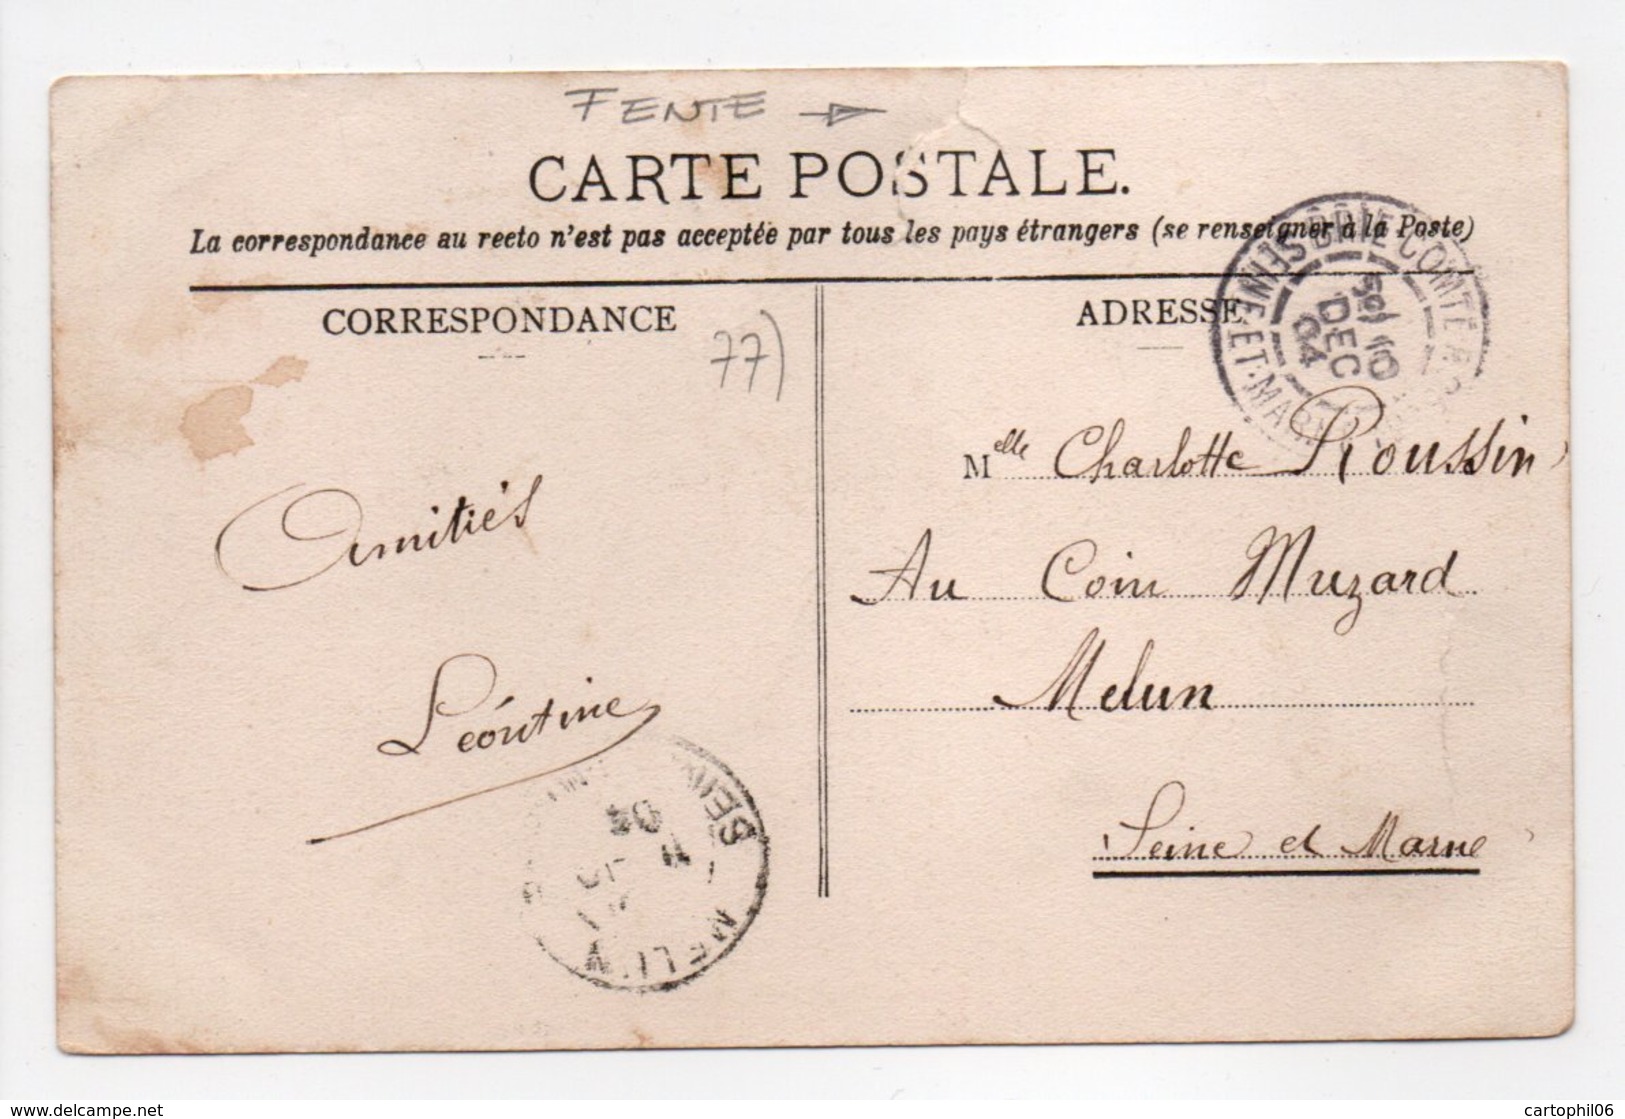 FENTE
CARTE POSTALE.
La correspondance au recto n'est pas acceptée par tous les pays étrangers (se renseigner à la Poste)
CORRESPONDANCE
77)
Amitiés
Léontine
ADRESSE
BRIE-COMTE-R
SEINE-ET-MARNE
10
DEC
04
Melle Charlotte Roussin
Au Coin Muzard
Melun
Seine et Marne
MELUN
SEINE
11
04
delcampe.net
cartophil06